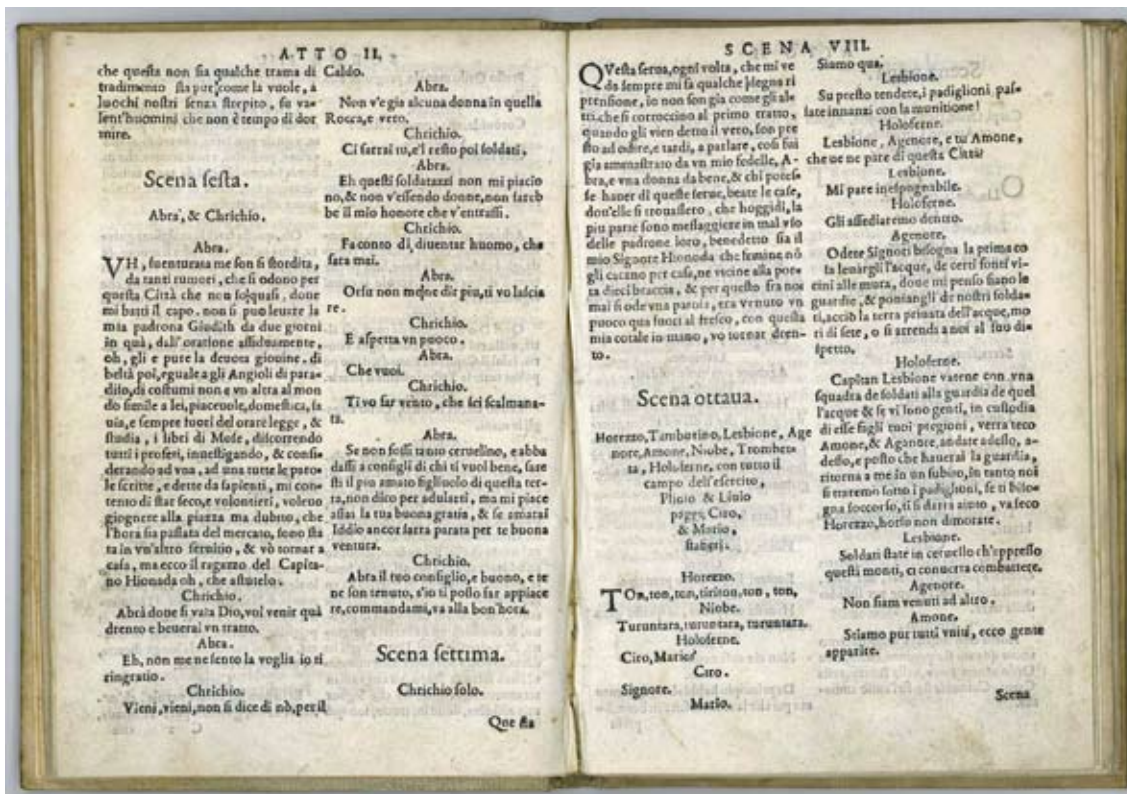 ATTO II.
che questa non sia qualche trama di
tradimento sia pur, come la vuole, a
luochi nostri senza strepito, su va-
lent'huomini che non è tempo di dor
mire.
Scena sesta.
Abra, & Chrichio.
Abra.
VH, suenturata me son sì stordita,
da tanti rumori, che si odono per
questa Città che non so, quasi, doue
mi batti il capo. non si può leuare la
mia padrona Giudith da due giorni
in quà, dall'oratione assiduamente,
oh, gli e pure la deuota giouine. di
beltà poi, eguale a gli Angioli di para-
diso, di costumi non e vn altra al mon
do simile a lei, piaceuole, domestica, sa
uia, e sempre fuori del orare legge, &
studia, i libri di Mose, discorrendo
tutti i profeti, inuestigando, & consi-
derando ad vna, ad una tutte le paro-
le scritte, e dette da sapienti, mi con-
tento di star seco, e volontieri, voleuo
giognere alla piazza ma dubito, che
l'hora sia passata del mercato, sono sta
ta in vn'altro seruitio, & vò tornar a
casa, ma ecco il ragazzo del Capita-
no Hionada oh, che astutelo.
Chrichio.
Abra doue si va la Dio, voi venir quà
drento e beuerai vn tratto.
Abra.
Eh, non me ne sento la voglia io ti
ringratio.
Chrichio.
Vieni, vieni, non si dice di nò, per il
Caldo.
Abra.
Non v'e gia alcuna donna in quella
Rocca, e vero.
Chrichio.
Ci sarai tu, e'l resto poi soldati.
Abra.
Eh questi soldatazzi non mi piacio
no, & non v'essendo donne, non sareb
be il mio honore che v'entrassi.
Chrichio.
Fa conto di, diuentar huomo, che
sara mai.
Abra.
Orsu non me ne dir piu, ti vo lascia
re.
Chrichio.
E aspetta vn puoco.
Abra.
Che vuoi.
Chrichio.
Ti vo far vento, che sei scalmana-
ta.
Abra.
Se non fossi tanto ceruelino, e abba
dassi a consigli di chi ti vuol bene, sare
sti il piu amato figliuolo di questa ter-
ra, non dico per adularti, ma mi piace
assai la tua buona gratia, & se amarai
Iddio ancor sarra parata per te buona
ventura.
Chrichio.
Abra il tuo consiglio, e buono, e te
ne son tenuto, s'io ti posso far appiace
re, commandami, va alla bon'hora.
Scena settima.
Chrichio solo.
Que sta
SCENA VIII.
QVesta serua, ogni volta, che mi ve
da sempre mi fa qualche plegna ri
prensione, io non son gia come gli al-
tri che si corroccino al primo tratto,
quando gli vien detto il vero, son pre
sto ad odire, e tardi, a parlare, cosi fui
gia amenastrato da vn mio fedelle, A-
bra, e vna donna da bene, & chi potes-
se hauer di queste serue, beate le case,
dou'elle si trouassero, che hoggidi, la
piu parte sono messaggiere in mal vso
delle padrone loro, benedetto sia il
mio Signore Hionoda che femine nõ
gli cacano per casa, ne vicine alla por-
ta dieci braccia, & per questo fra noi
mai si ode vna parola, era venuto vn
puoco qua fuori al fresco, con questa
mia cotale in mano, vo tornar dren-
to.
Scena ottaua.
Horezzo, Tamburino, Lesbione, Age
nore, Amone, Niobe, Trombeta
ta, Holoferne, con tutto il
campo dell'esercito,
Plicio & Liuio
paggi, Ciro,
& Mario,
staberi.
Horezzo.
TOn, ton, ton, tiriton, ton, ton,
Niobe.
Turuntara, turuntara, turuntara.
Holoferne.
Ciro, Mario
Ciro.
Signore.
Mario.
Siamo qua.
Lesbione.
Su presto tendete, i padiglioni, pas-
sate innanzi con la munitione!
Holoferne.
Lesbione, Agenore, e tu Amone,
che ue ne pare di questa Città?
Lesbione.
Mi pare inespognabile.
Holoferne.
Gli assediaremo dentro.
Agenore.
Odete Signori bisogna la prima co
sa leuargli l'acque, de certi fonti vi-
cini alle mura, doue mi penso siano le
guardie, & poniangli de nostri solda-
ti, acciò la terra priuata dell'acque, mo
ri di sete, o si arrenda a noi al suo di-
spetto.
Holoferne.
Capitan Lesbione vatene con vna
squadra de soldati alla guardia de quel
l'acque & se vi sono genti, in custodia
di esse fagli tuoi pregioni, verra teco
Amone, & Aganore, andate adesso, a-
desso, e posto che hauerai la guardia,
ritorna a me in un subito, in tanto noi
si traremo sotto i padiglioni, se ti biso-
gna soccorso, ti si darra aiuto, va seco
Horezzo, horsu non dimorate.
Lesbione.
Soldati state in ceruello ch'appresso
questi monti, ci conuerra combattere.
Agenore.
Non siam venuti ad altro.
Amone.
Stiamo pur tutti vniti, ecco gente
apparire.
Scena